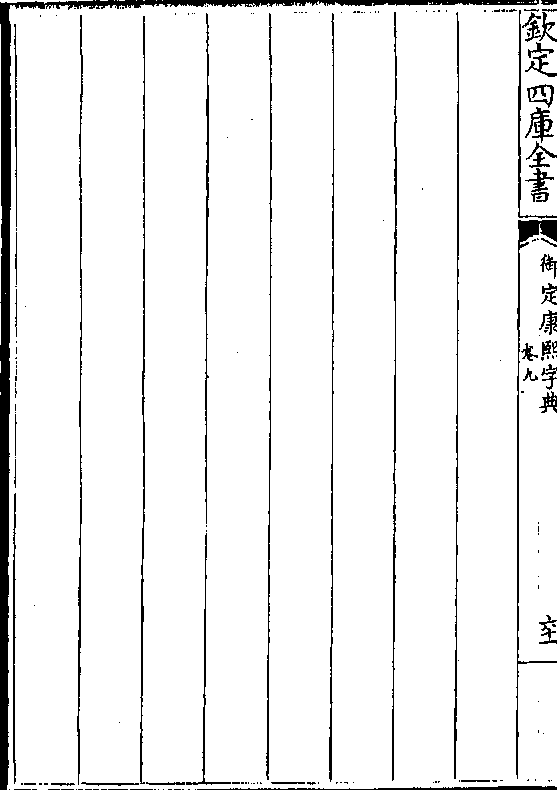 欽定四庫全書
御定康熙字典
卷九